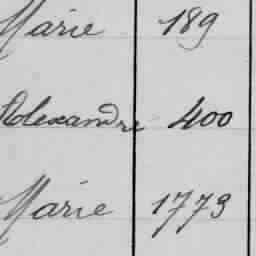 Marie 189
Alexandre 400
Marie 1773